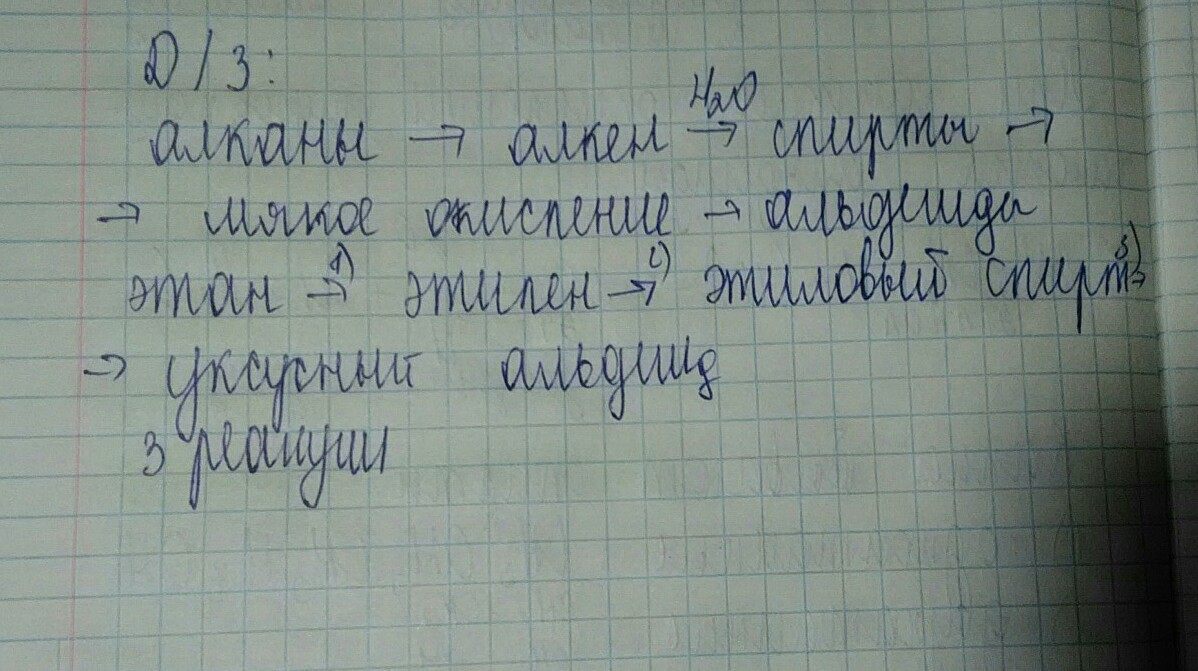 Д/З:
алканы → алкен H₂O → спирты →
→ мягкое окисление → альдегиды
этан 1) → этилен 2) → этиловый спирт 3) →
→ уксусный альдегид
3 реакции